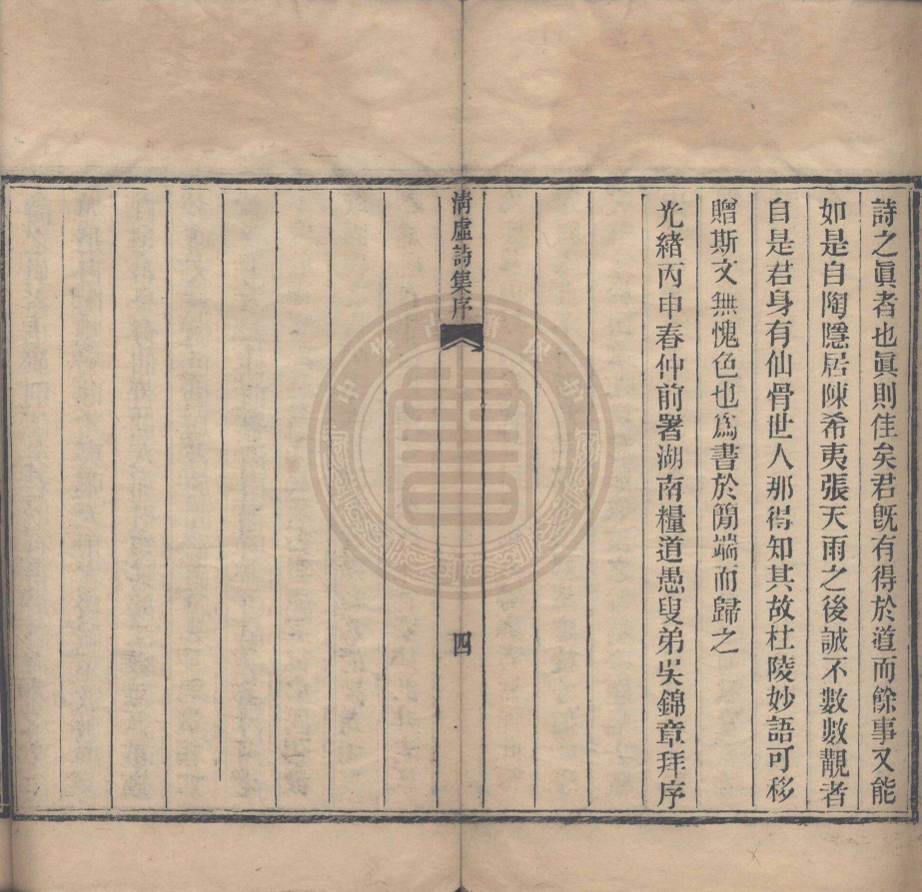 詩之眞者也眞則佳矣君旣有得於道而餘事又能
如是自陶隱居陳希夷張天雨之後誠不數數覯者
自是君身有仙骨世人那得知其故杜陵妙語可移
贈斯文無愧色也爲書於簡端而歸之
光緒丙申春仲前署湖南糧道愚叟弟吳錦章拜序
淸虛詩集序
四